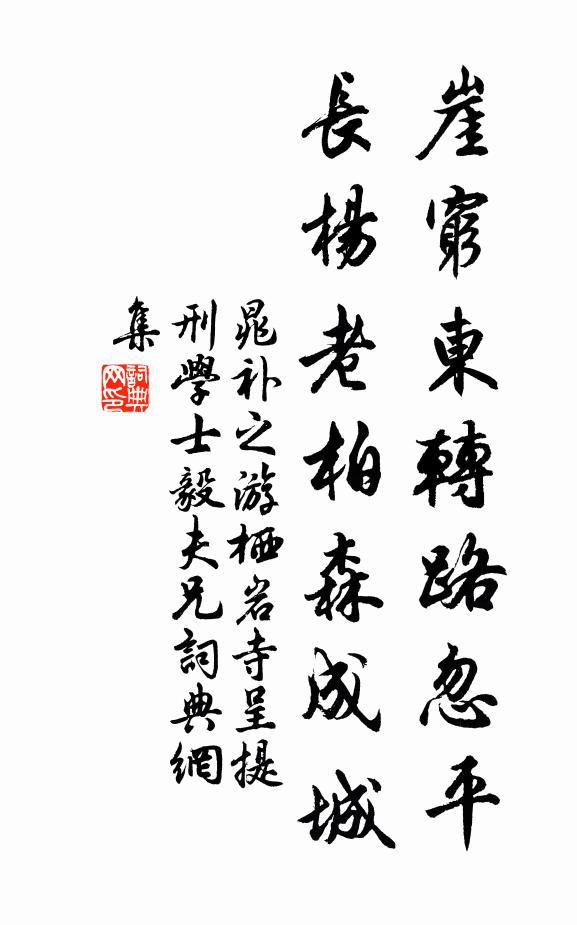 崖窮東轉路忽平
長楊老柏森成城
晁补之游栖岩寺呈提
刑學士毅夫兄詞典網
集
詞典網印